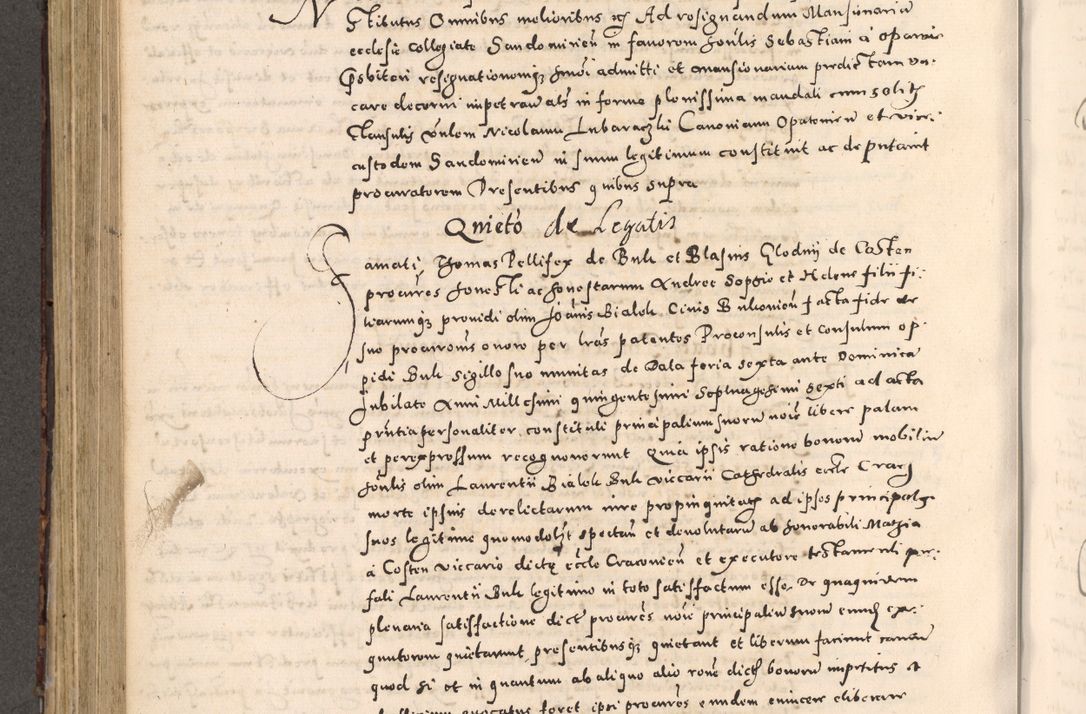 stitutus Omnibus melioribus etc Ad resignandum Mansionaria
ecclesie Collegiate Sandomirien in favorem honlis Sebastiani a Opatow
Presbiteri resignationemque hmoi admitti et mansionariam predictam va-
care decerni impetrans in forma plenissima mandati cum solitis
Clausulis Venlem Nicolaum Lubaraczki Canonicum Opatovien et vice
custodem Sandomirien in suum legitimum constituit ac deputavit
procuratorem Presentibus quibus supra
Quieto de Legatis
Famati Thomas Pellifex de Buk et Blasius Glodnij de Costen
procures honesti ac honestarum Andree Sophie et Helene filii fi-
liarumque providi olim Joannis Bialek Civis Bukovien facta fide de
suo procuronis onere per lras patentes Proconsulis et Consulum op-
pidi Buk Sigillo suo munitas de Data feria sexta ante Dominica
Jubilate Anni Millesimi quingentesimi Septuagesimi sexti ad acta
prntia personaliter constituti principalium suorum noie libere palam
et per expressum recognoverunt Quia ipsis ratione bonorum mobilium
honlis olim Laurentii Bialek Buk Viccarii Cathedralis eccle Crac
morte ipsius derelictarum iure propinquitatis ad ipsos principales
suos legitime quomodolibet spectan et devolutarum ab honorabili Mathia
a Costen Viccario dicte eccle Cracovien et executore testamenti pre-
fati Laurentii Buk legitimo in toto satisfactum esse De quaquidem
plenaria satisfactione dicti procures noie principalium suorum eundem exe-
quutorem quietarunt presentibusque quietant et liberum faciunt
quod si et in quantum ab aliquo alio rone dictorum bonorum impetitus et
quocatus foret ipsi procures eundem evincere eliberare